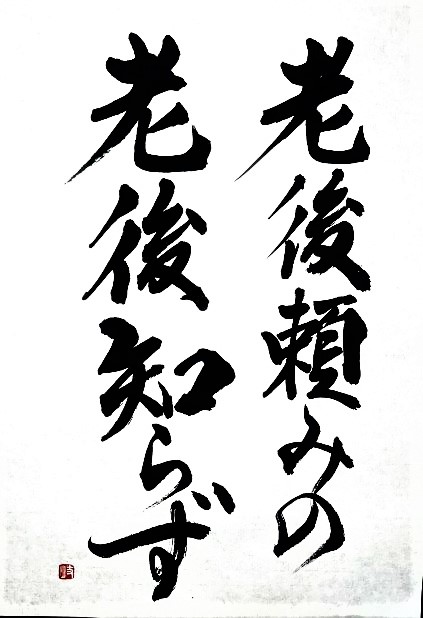 老後頼みの
老後知らず